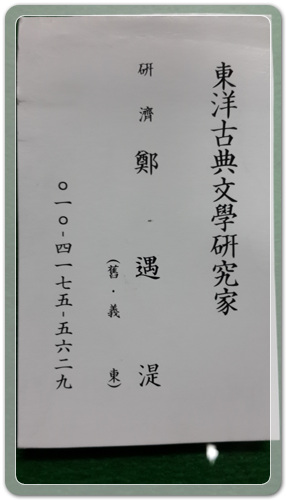 東洋古典文學研究家
研濟 鄭遇湜
(舊·義東)
〇一〇-四一七五-五六二九